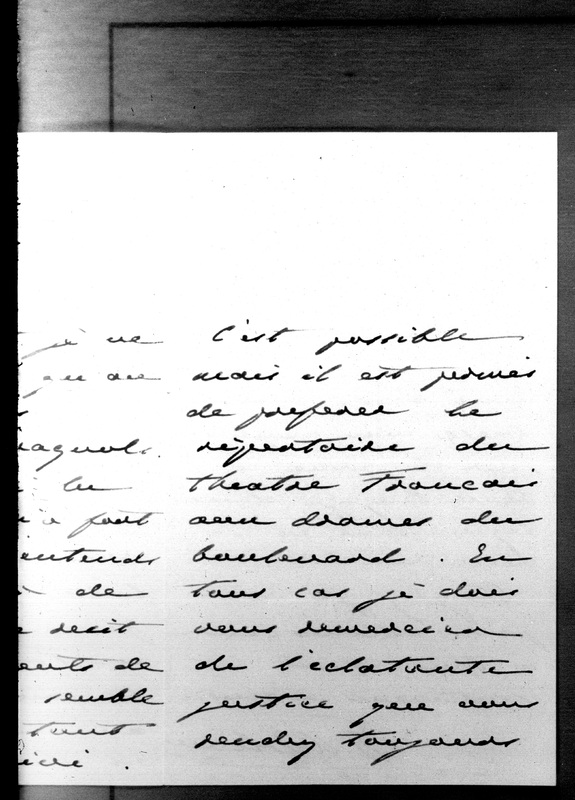 je ne
que
lu
fait
de
récit
de
semble
tant
ici.
c'est possible
mais il est permis
de preferer le
répertoire du
theatre Francais
aux drames du
boulevard. En
tous cas je dois
vous remercier
de l'eclatante
justice que vous
rendez toujours